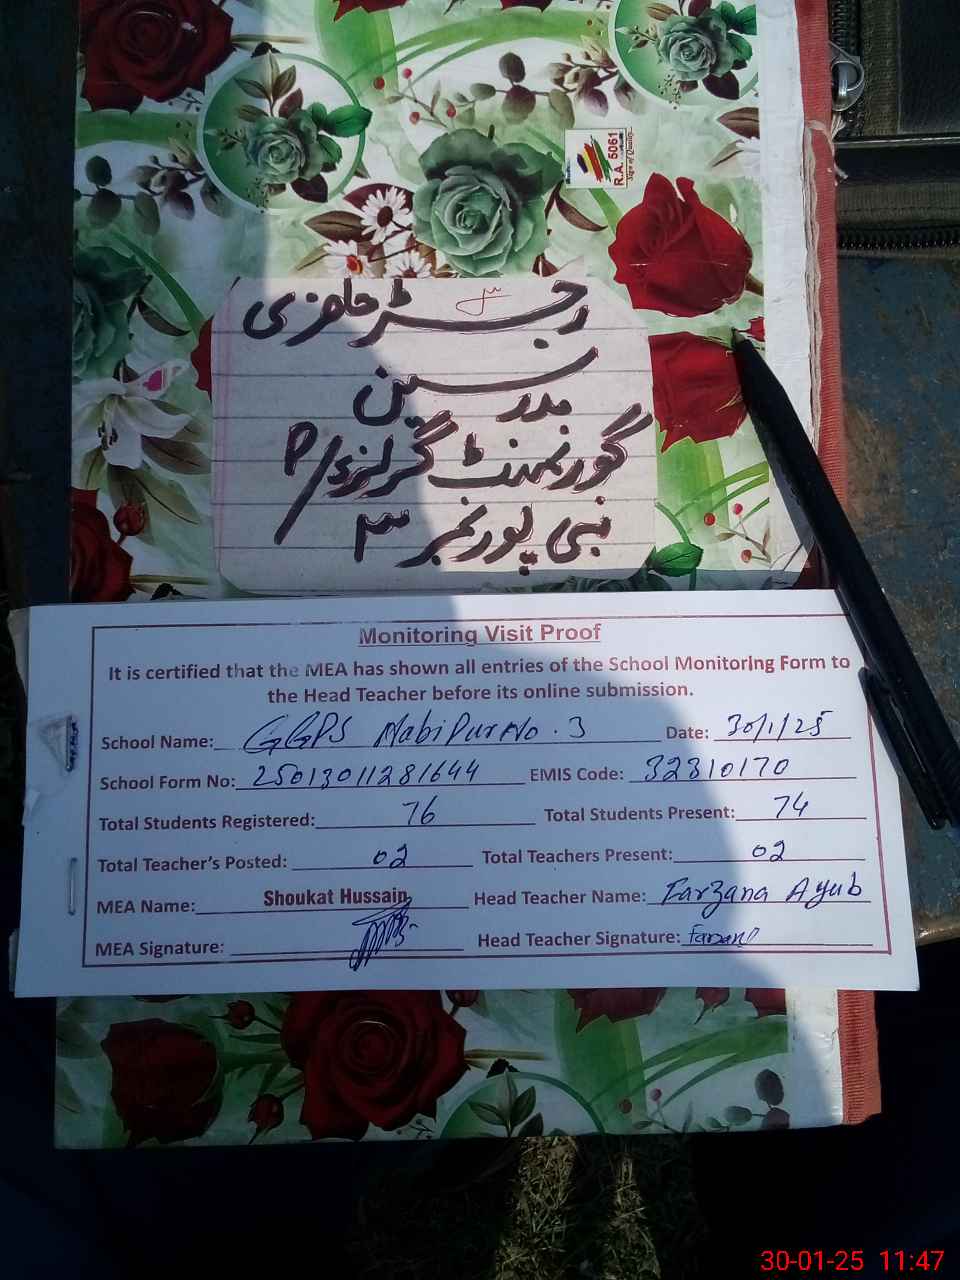 R.A. 5061
Sign of Quality
رجسٹر حاضری
مدرسین
گورنمنٹ گرلز P/S
نبی پور نمبر ۳
Monitoring Visit Proof
It is certified that the MEA has shown all entries of the School Monitoring Form to
the Head Teacher before its online submission.
School Name: GGPS Nabi Pur No. 3 Date: 30/1/25
School Form No: 25013011281644 EMIS Code: 32310170
Total Students Registered: 76 Total Students Present: 74
Total Teacher's Posted: 02 Total Teachers Present: 02
MEA Name: Shoukat Hussain Head Teacher Name: Farzana Ayub
MEA Signature: Head Teacher Signature: Farzana
30-01-25 11:47